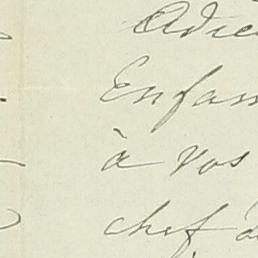 Adieu
Enfan
à vos
chef d